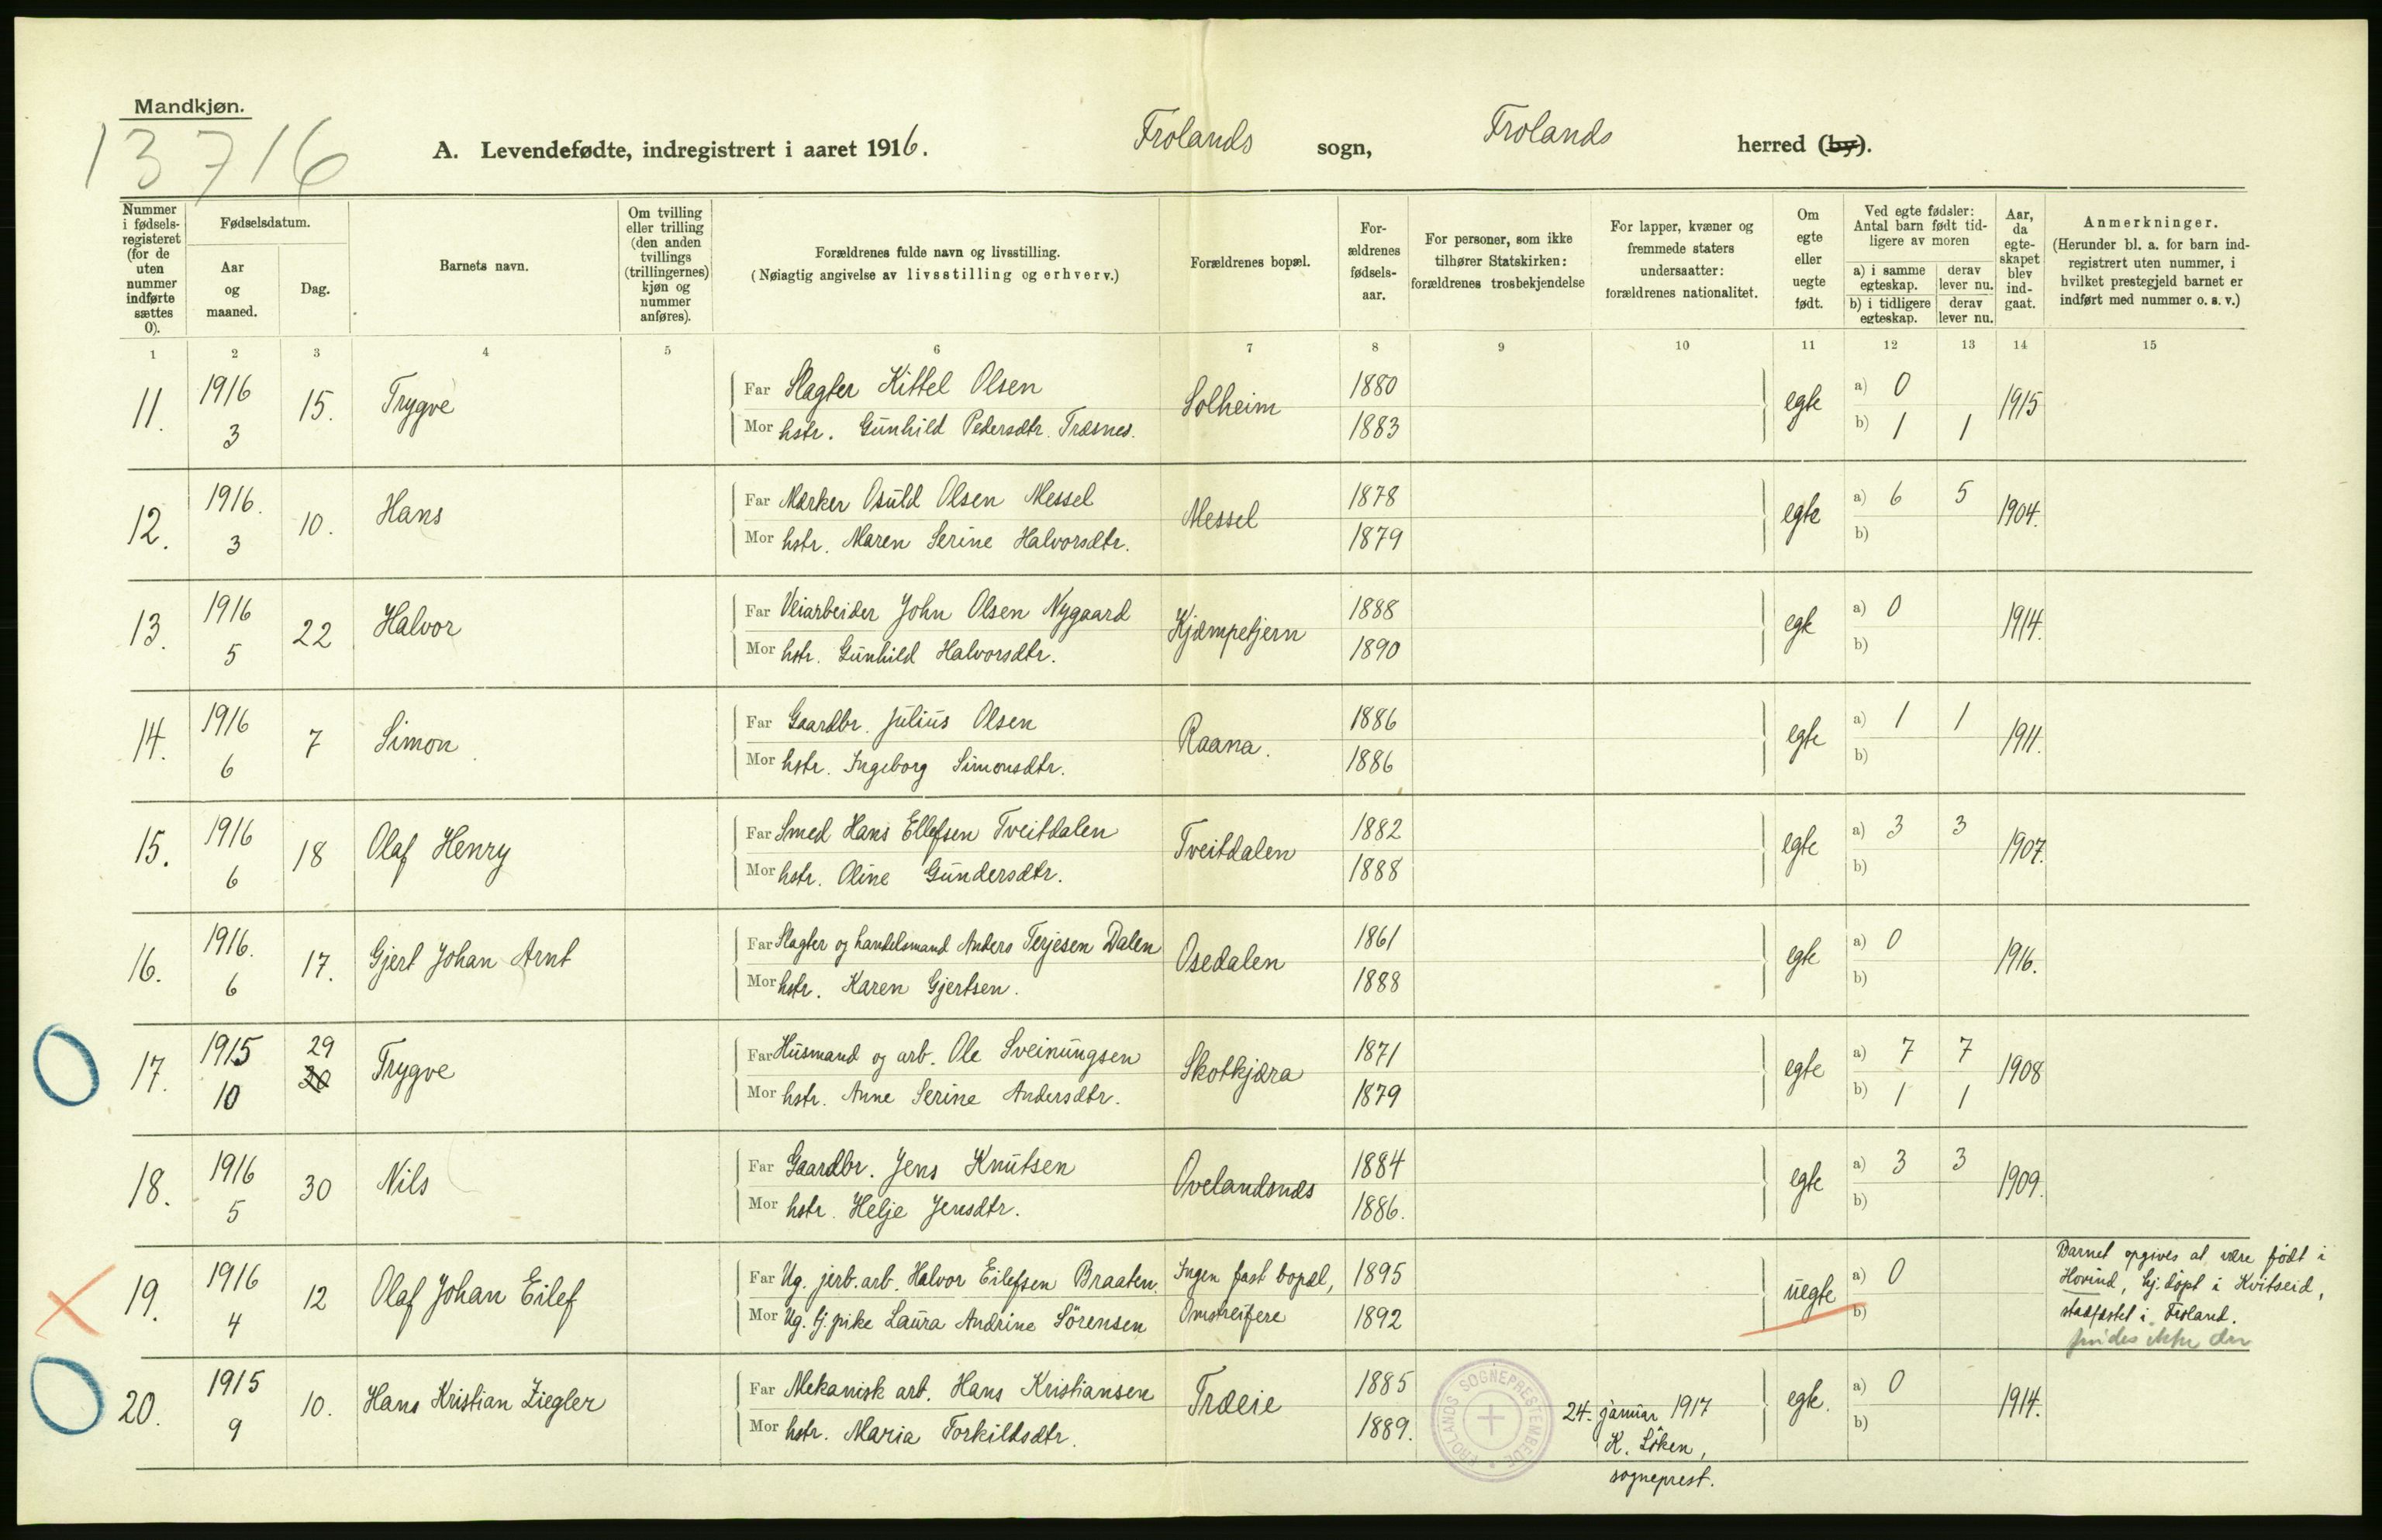 Mandkjøn.
13716
A. Levendefødte, indregistrert i aaret 1916. Frolands sogn, Frolands herred (by).
Nummer i fødsels-registeret (for de uten nummer indførte sættes 0).
Fødselsdatum.
Aar og maaned.
Dag.
Barnets navn.
Om tvilling eller trilling (den anden tvillings (trillingernes) kjøn og nummer anføres).
Forældrenes fulde navn og livsstilling.
(Nøiagtig angivelse av livsstilling og erhverv.)
Forældrenes bopæl.
For-ældrenes fødsels-aar.
For personer, som ikke tilhører Statskirken: forældrenes trosbekjendelse
For lapper, kvæner og fremmede staters undersaatter: forældrenes nationalitet.
Om egte eller uegte født.
Ved egte fødsler: Antal barn født tid-ligere av moren
a) i samme egteskap. derav lever nu.
b) i tidligere egteskap. derav lever nu.
Aar, da egte-skapet blev ind-gaat.
Anmerkninger.
(Herunder bl. a. for barn ind-registrert uten nummer, i hvilket prestegjeld barnet er indført med nummer o. s. v.)
1 2 3 4 5 6 7 8 9 10 11 12 13 14 15
11. 1916 3 15. Trygve
Far Slagter Kittel Olsen Solheim 1880 egte a) 0 1915
Mor hstr. Gunhild Pedersdtr. Træsnes. 1883 b) 1 1
12. 1916. 3 10. Hans
Far Mærker Osuld Olsen Messel Messel 1878 egte a) 6 5 1904.
Mor hstr. Maren Serine Halvorsdtr. 1879 b)
13. 1916 5 22 Halvor
Far Veiarbeider John Olsen Nygaard Kjæmpetjern 1888 egte a) 0 1914.
Mor hstr. Gunhild Halvorsdtr. 1890 b)
14. 1916 6 7 Simon
Far Gaardbr. Julius Olsen Raana. 1886 egte a) 1 1 1911.
Mor hstr. Ingeborg Simonsdtr. 1886 b)
15. 1916 6 18 Olaf Henry
Far Smed Hans Ellefsen Tveitdalen Tveitdalen 1882 egte a) 3 3 1907.
Mor hstr. Oline Gundersdtr. 1888 b)
16. 1916. 6 17. Gjert Johan Arnt
Far Slagter og handelsmand Anders Terjesen Dalen Osedalen 1861 egte a) 0 1916.
Mor hstr. Karen Gjertsen. 1888 b)
17. 1915 10 29 30 Trygve
Far Husmand og arb. Ole Sveinungsen Skotkjæra 1871 egte a) 7 7 1908
Mor hstr. Anne Serine Andersdtr. 1879 b) 1 1
18. 1916 5 30 Nils
Far Gaardbr. Jens Knutsen Ovelandsnæs 1884 egte a) 3 3 1909.
Mor hstr. Helje Jensdtr. 1886. b)
19. 1916 4 12 Olaf Johan Eilef
Far Ug. jerb. arb. Halvor Eilefsen Braaten. Ingen fast bopæl, 1895 uegte a) 0
Mor Ug. tj. pike Laura Andrine Sörensen Omstreifere 1892 b)
Barnet opgives at være født i
Hovind, hj. döpt i Kvitseid,
stadfæstet i Froland.
findes ikke der
20. 1915 9 10. Hans Kristian Ziegler
Far Mekanisk arb. Hans Kristiansen Træeie 1885 egte. a) 0 1914.
Mor hstr. Maria Torkildsdtr. 1889. b)
FROLANDS SOGNEPRESTEMBEDE
24. januar 1917
K. Löken,
sogneprest.